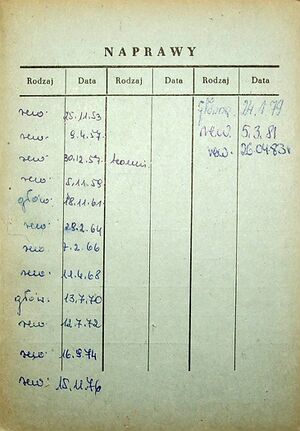 NAPRAWY
Rodzaj Data Rodzaj Data Rodzaj Data
rew. 25.11.53 główna 24.1.79
rew. 9.4.57 rew. 5.3.81
rew. 30.12.57 rew. 26.04.83r
rew. 5.11.59
główn. 18.11.61
rew. 28.2.64
rew. 7.2.66
rew. 11.4.68
główn. 13.7.70
rew. 12.7.72
rew. 16.9.74
rew. 15.11.76